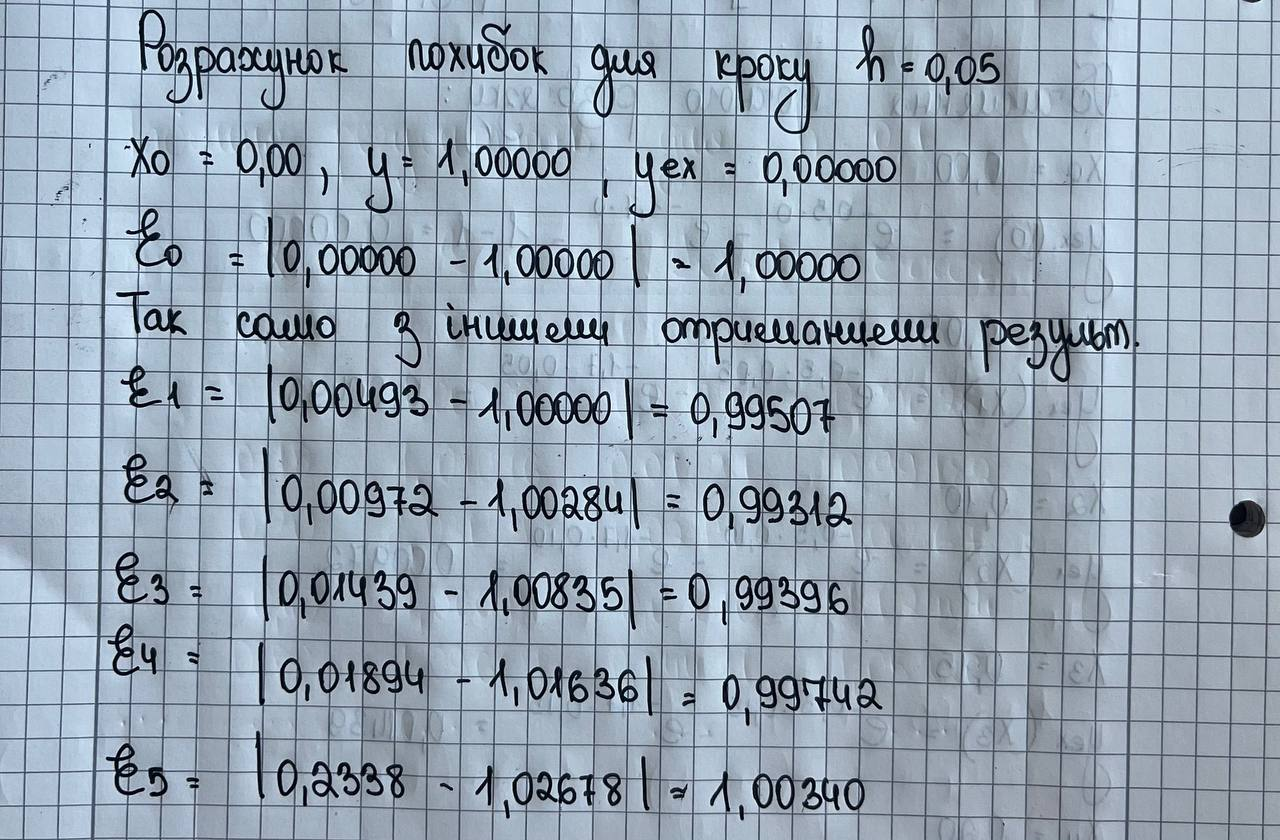 Розрахунок похибок для кроку h = 0,05
x0 = 0,00, y = 1,00000, yex = 0,00000
ε0 = |0,00000 - 1,00000| = 1,00000
Так само з іншими отриманими результ.
ε1 = |0,00493 - 1,00000| = 0,99507
ε2 = |0,00972 - 1,00284| = 0,99312
ε3 = |0,01439 - 1,00835| = 0,99396
ε4 = |0,01894 - 1,01636| = 0,99742
ε5 = |0,2338 - 1,02678| = 1,00340